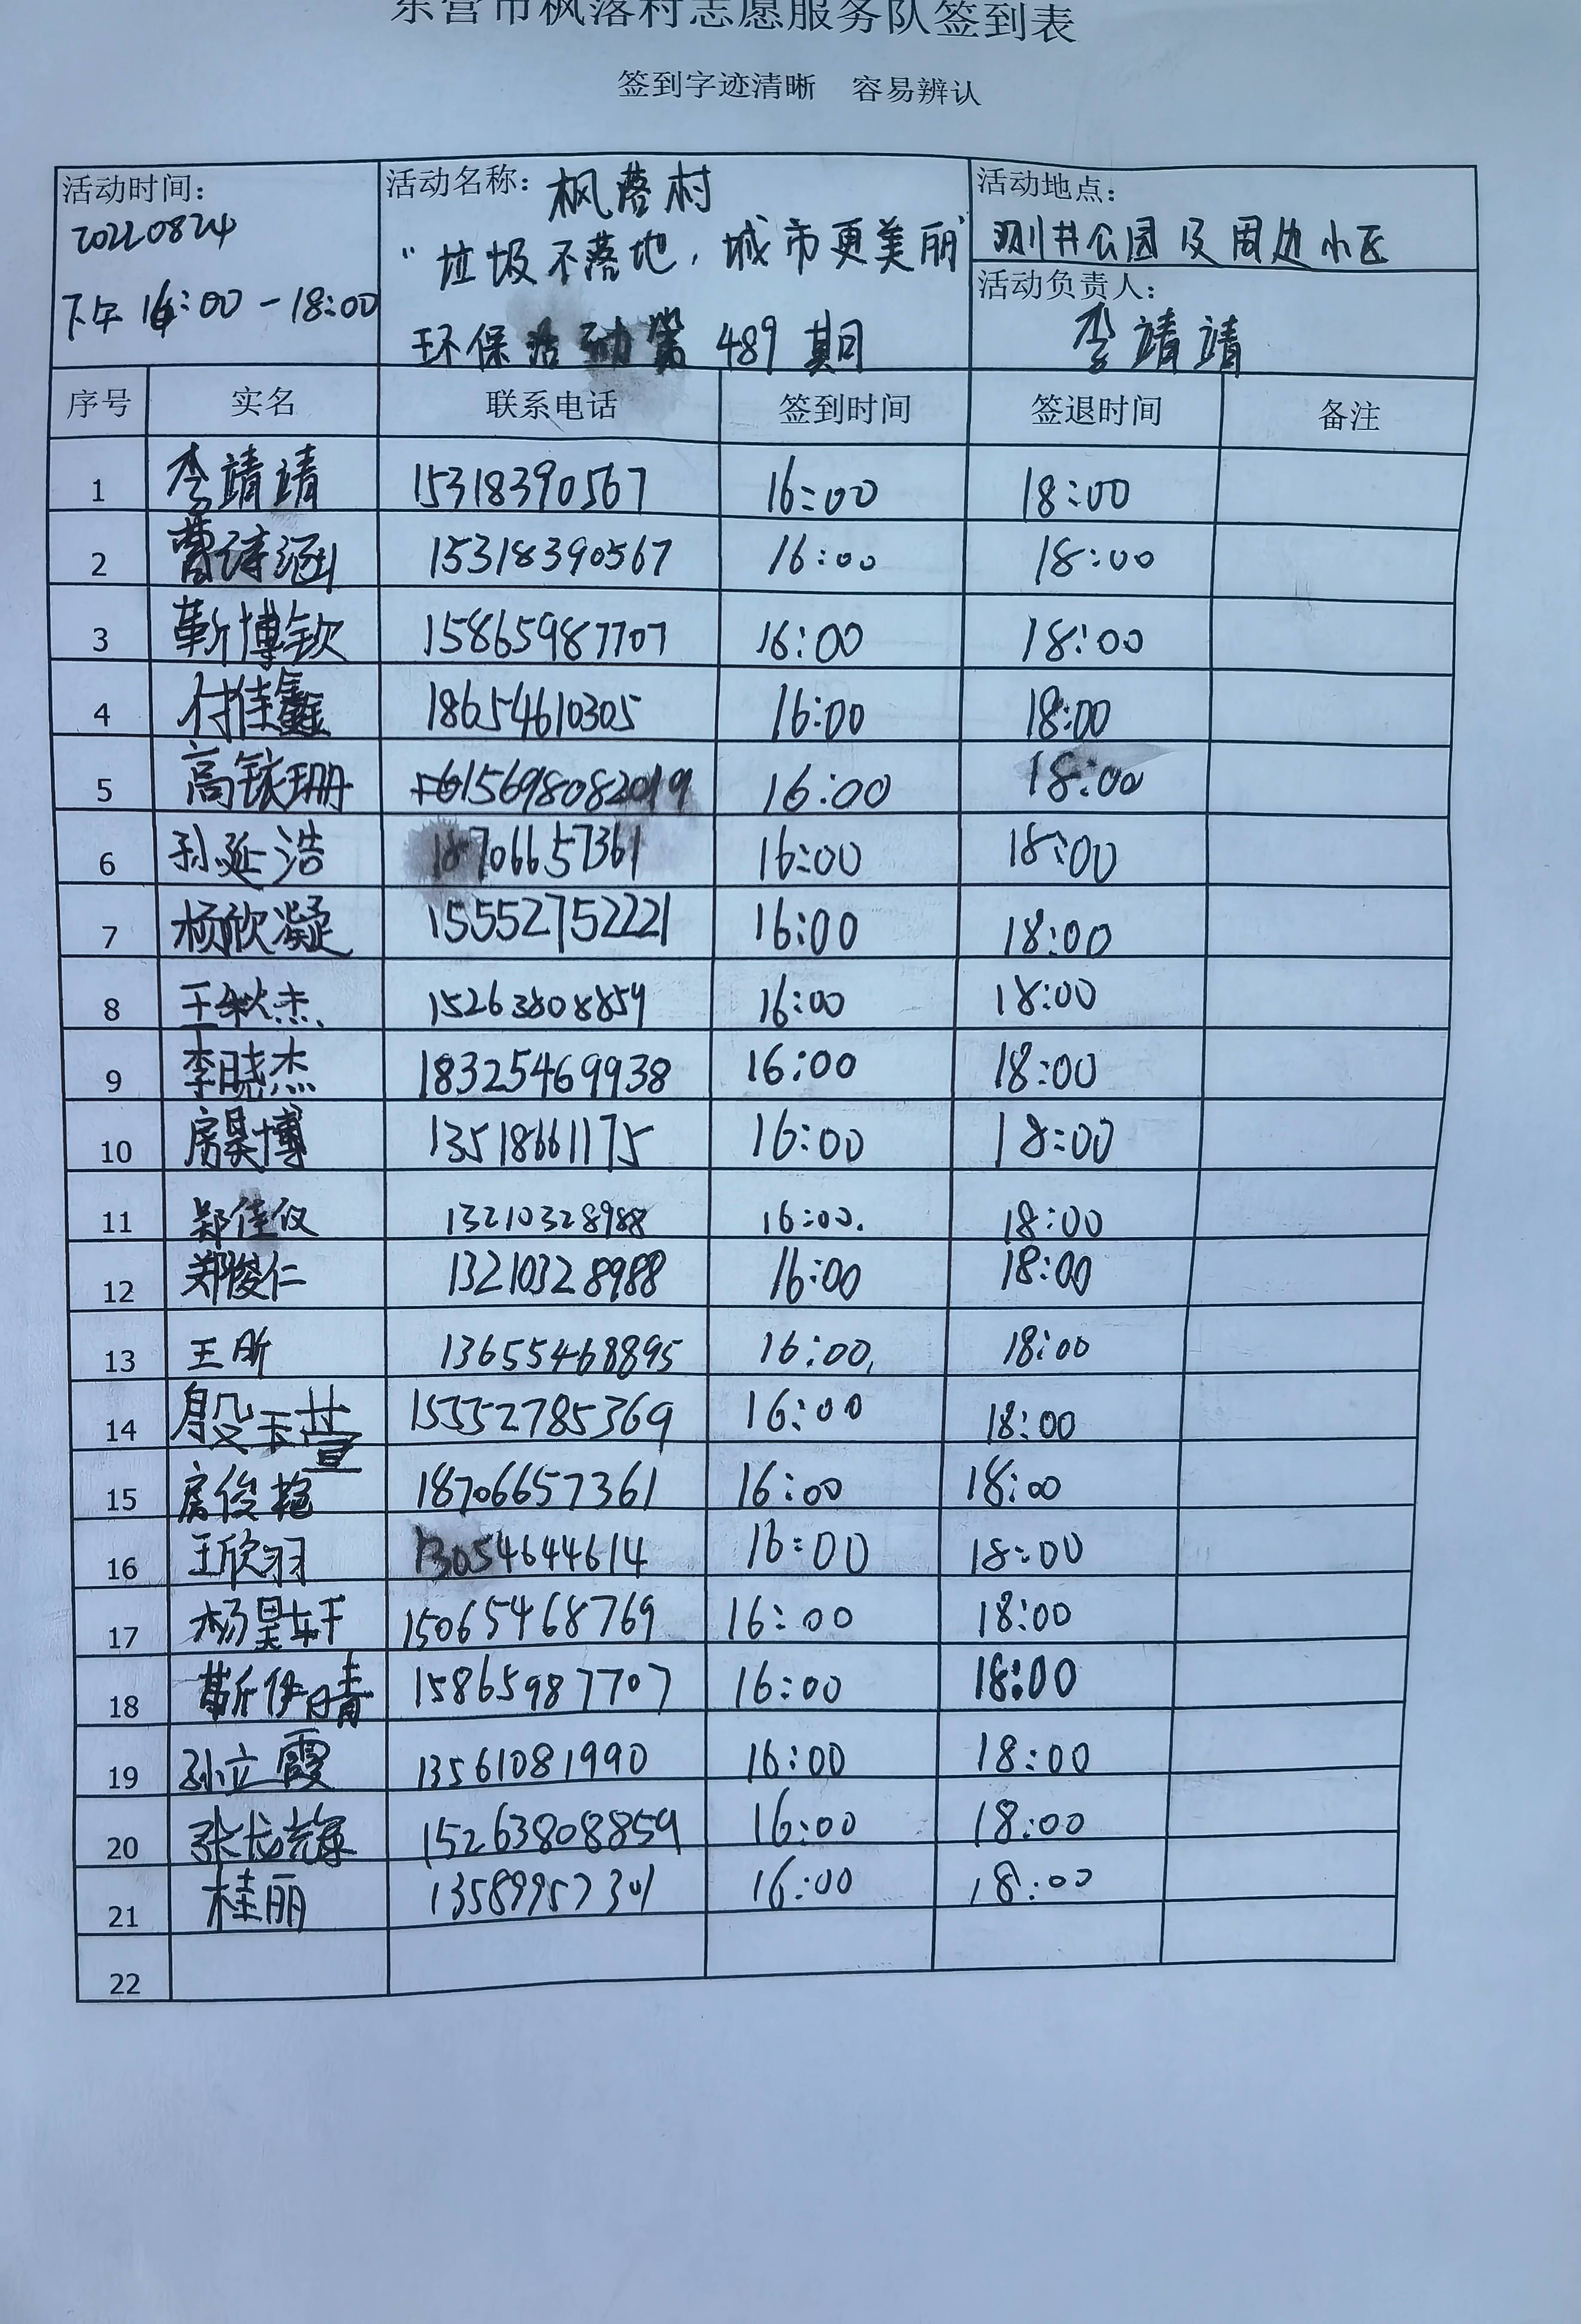 东营市枫落村志愿服务队签到表
签到字迹清晰 容易辨认
活动时间：
20220824
下午 16:00-18:00
活动名称： 枫落村
“垃圾不落地，城市更美丽”
环保活动第 489 期
活动地点：
测井公园及周边小区
活动负责人：
李靖靖
序号 实名 联系电话 签到时间 签退时间 备注
1 李靖靖 15318390567 16:00 18:00
2 曹诗涵 15318390567 16:00 18:00
3 靳博钦 15865987707 16:00 18:00
4 付佳鑫 18654610305 16:00 18:00
5 高铱珊 15698082019 16:00 18:00
6 孙延浩 18706657361 16:00 18:00
7 杨欣凝 15552752221 16:00 18:00
8 王秋杰 15263808859 16:00 18:00
9 李晓杰 18325469938 16:00 18:00
10 房昊博 13518661175 16:00 18:00
11 郑佳仪 13210328988 16:00. 18:00
12 郑俊仁 13210328988 16:00 18:00
13 王昕 13655468895 16:00. 18:00
14 殷玉萱 15552785369 16:00 18:00
15 房俊 18706657361 16:00 18:00
16 王欣羽 13054644614 16:00 18:00
17 杨昊轩 15065468769 16:00 18:00
18 靳伊晴 15865987707 16:00 18:00
19 孙立霞 13561081990 16:00 18:00
20 张 15263808859 16:00 18:00
21 桂丽 13589957301 16:00 18:00
22